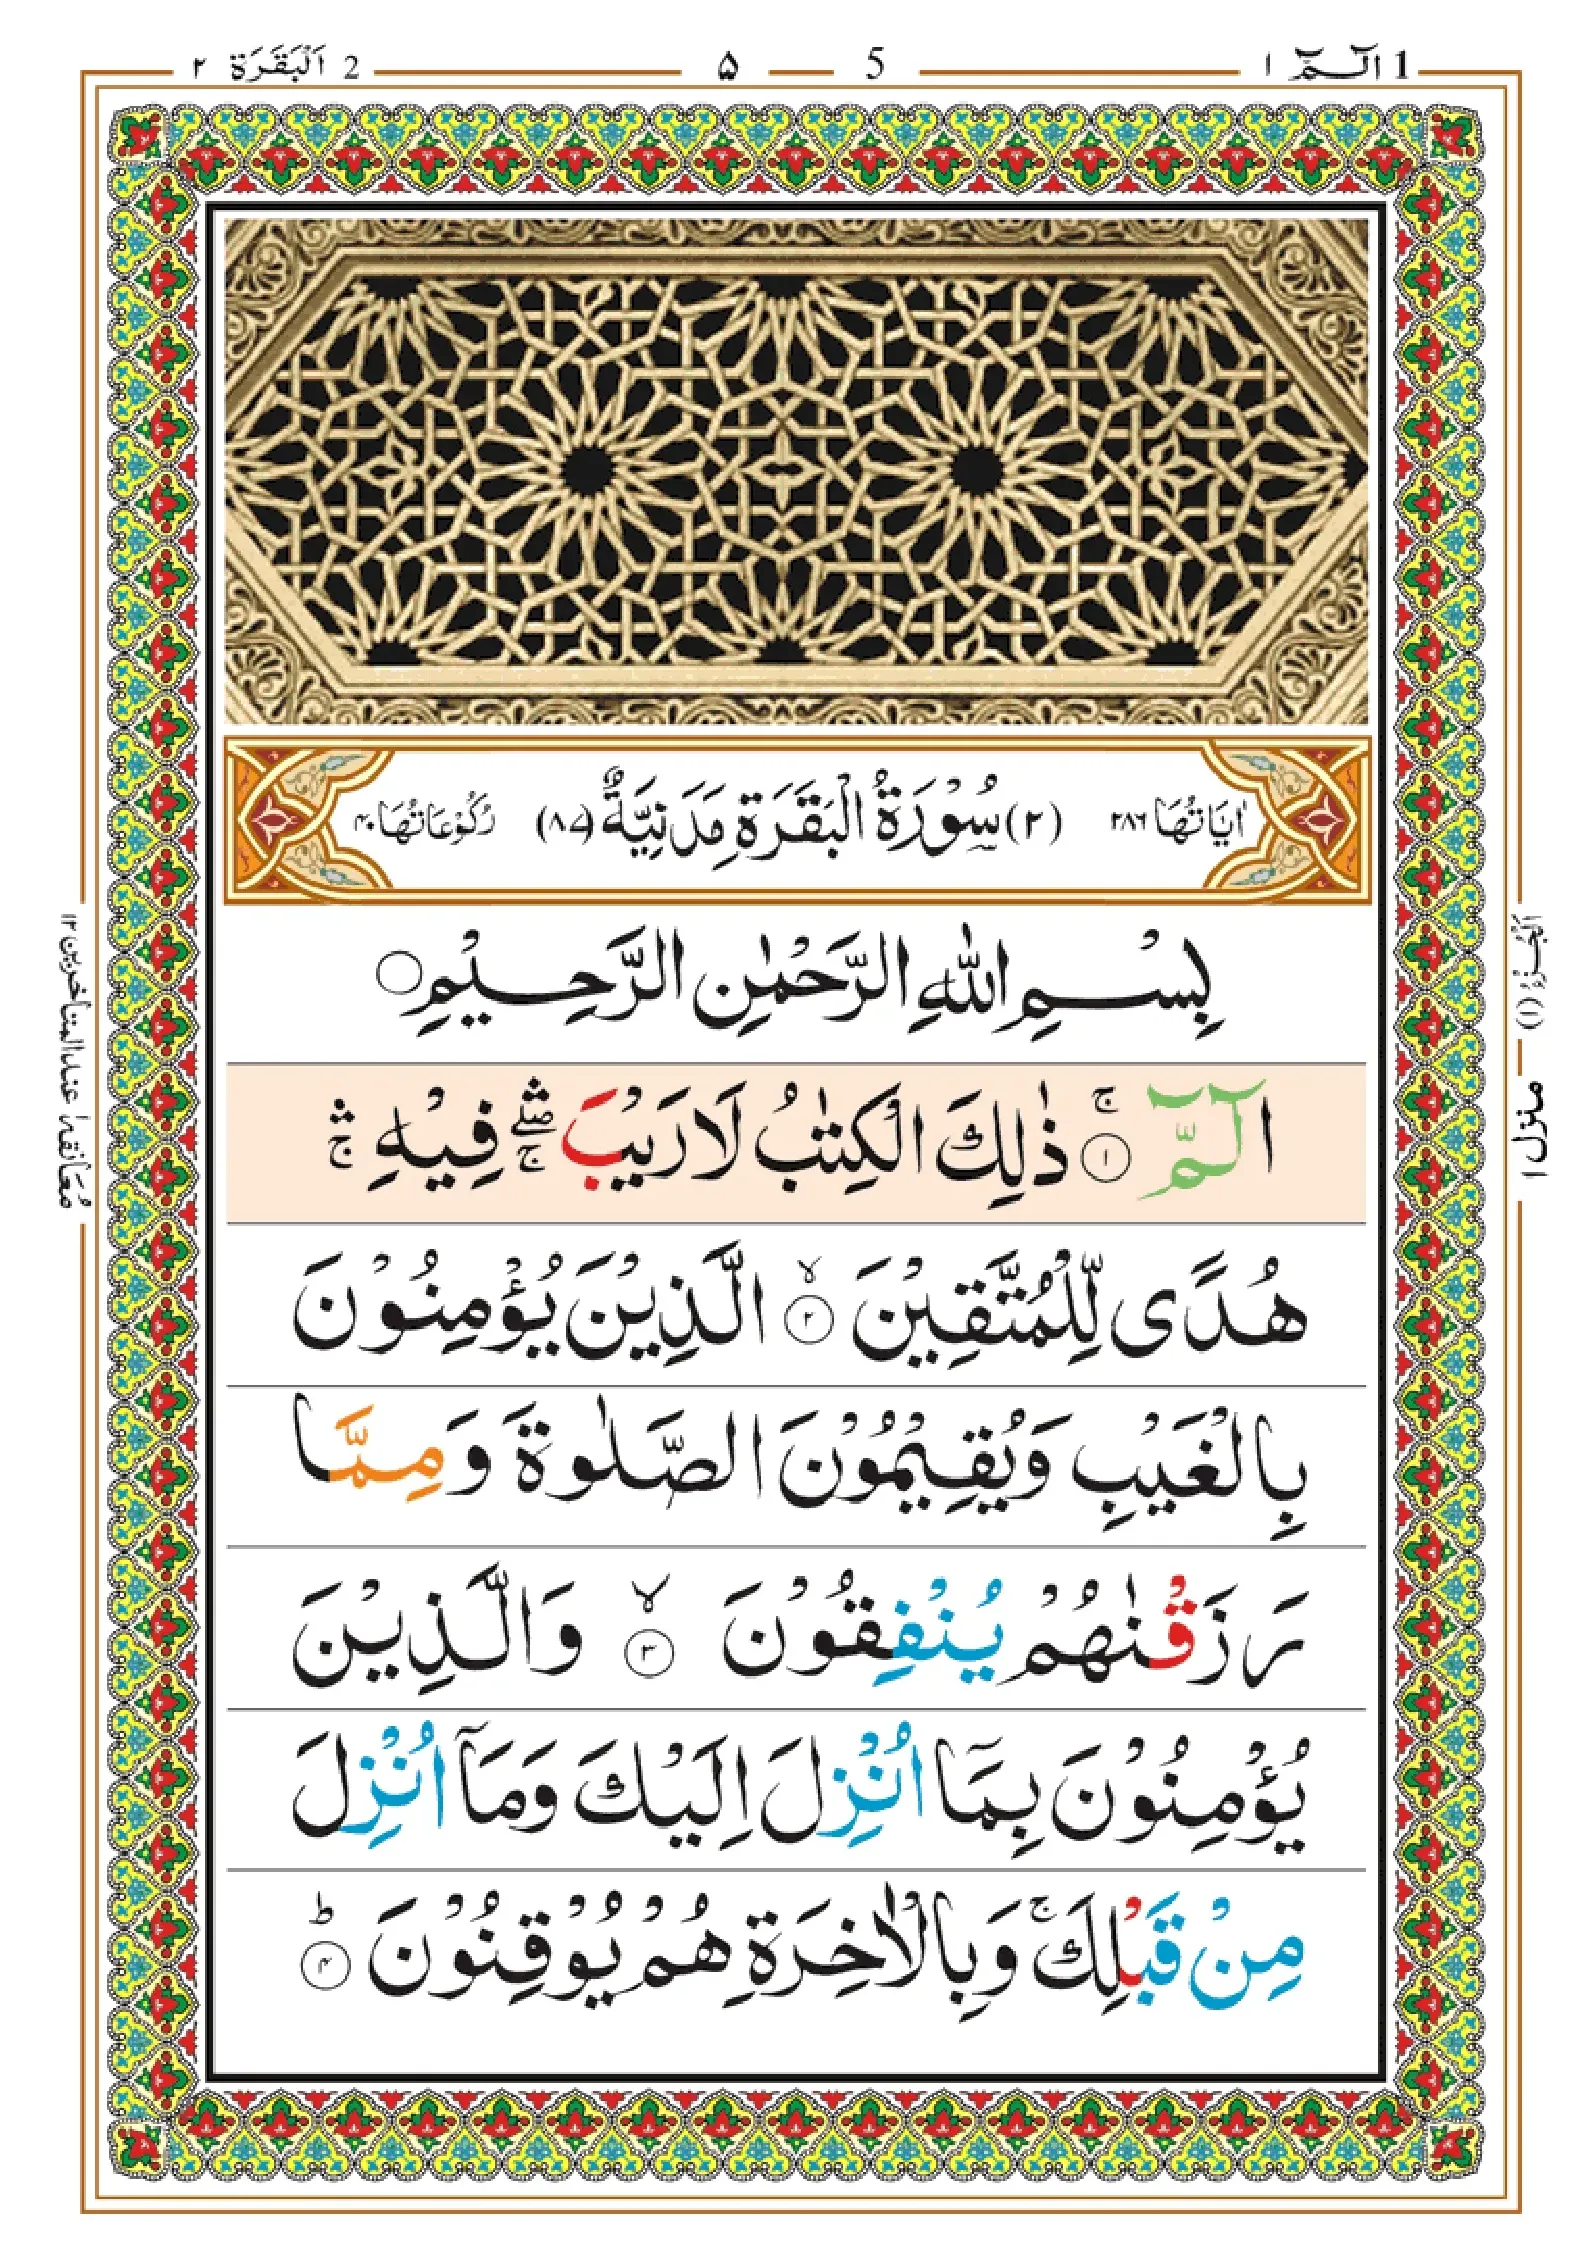 1 الٓـمّٓ ١
5 ۵
2 اَلْبَقَرَة ٢
اٰيَاتُهَا ٢٨٦ (٢) سُوْرَةُ الْبَقَرَةِ مَدَنِيَّةٌ (٨٧) رُكُوْعَاتُهَا ٤٠
بِسْمِ اللّٰهِ الرَّحْمٰنِ الرَّحِيْمِ ○
الٓـمّٓ ۚ ﴿١﴾ ذٰلِكَ الْكِتٰبُ لَا رَيْبَ ۛۖۚ فِيْهِ ۛۚ
هُدًى لِّلْمُتَّقِيْنَ ۙ ﴿٢﴾ الَّذِيْنَ يُؤْمِنُوْنَ
بِالْغَيْبِ وَيُقِيْمُوْنَ الصَّلٰوةَ وَمِمَّا
رَزَقْنٰهُمْ يُنْفِقُوْنَ ۙ ﴿٣﴾ وَالَّذِيْنَ
يُؤْمِنُوْنَ بِمَآ اُنْزِلَ اِلَيْكَ وَمَآ اُنْزِلَ
مِنْ قَبْلِكَ ۚ وَبِالْاٰخِرَةِ هُمْ يُوْقِنُوْنَ ؕ ﴿٤﴾
اَلْجُزْءُ (١)
منزل ١
مُعَانَقَه ١ عند المتأخرين ١٢